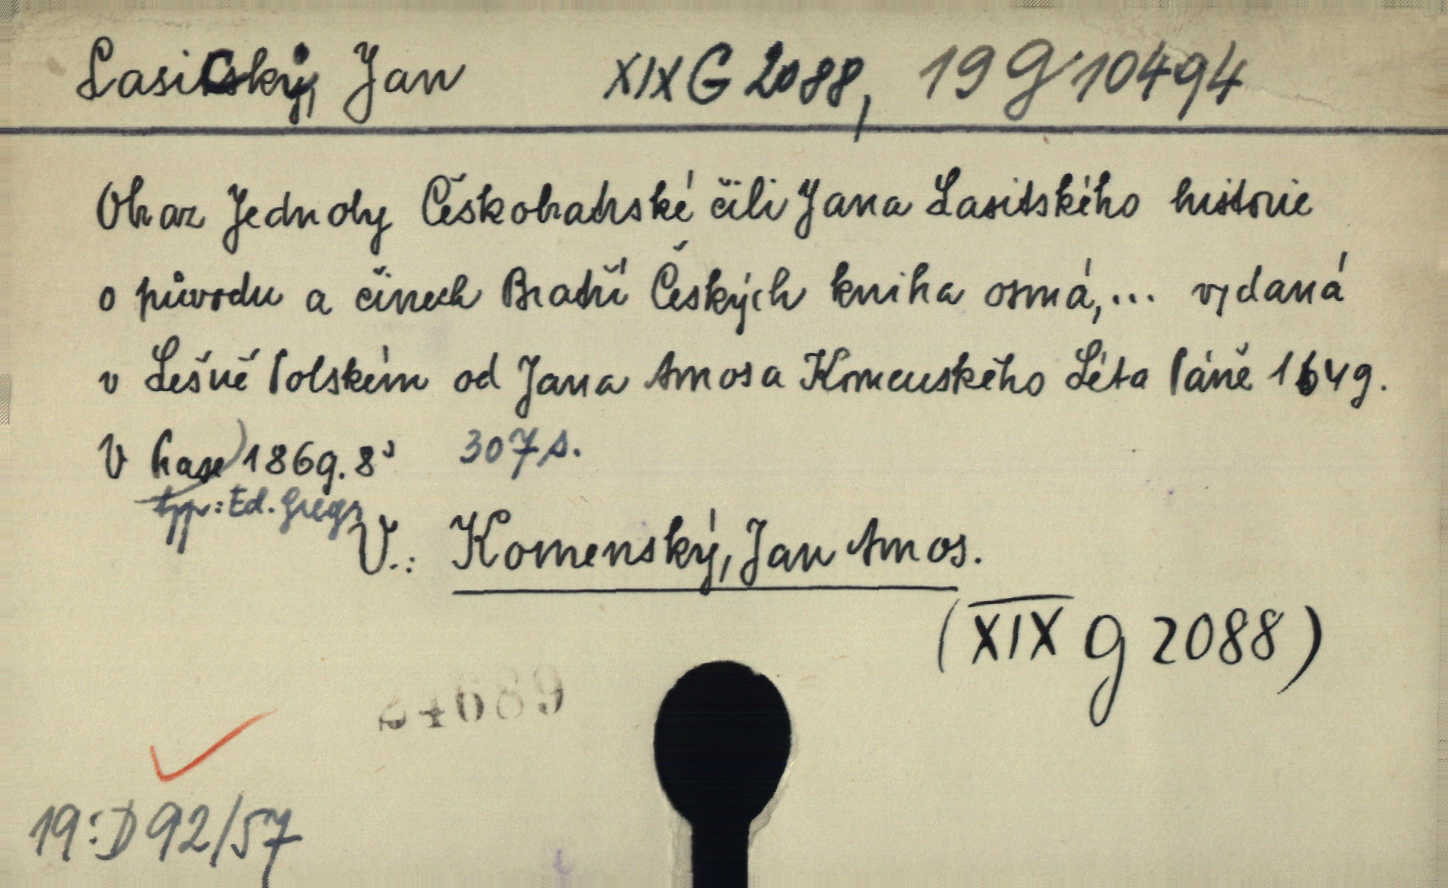 Lasicský, Jan XIX G 2088, 19 G 10494
Obraz Jednoty Českobratrské čili Jana Lasitského historie
o původu a činech Bratří Českých kniha osmá,... vydaná
v Lešně Polském od Jana Amosa Komenského Léta Páně 1649.
V Praze 1869. 8° 307 s.
typ: Ed. Grégr
V.: Komenský, Jan Amos.
(XIX G 2088)
19:D 92/57